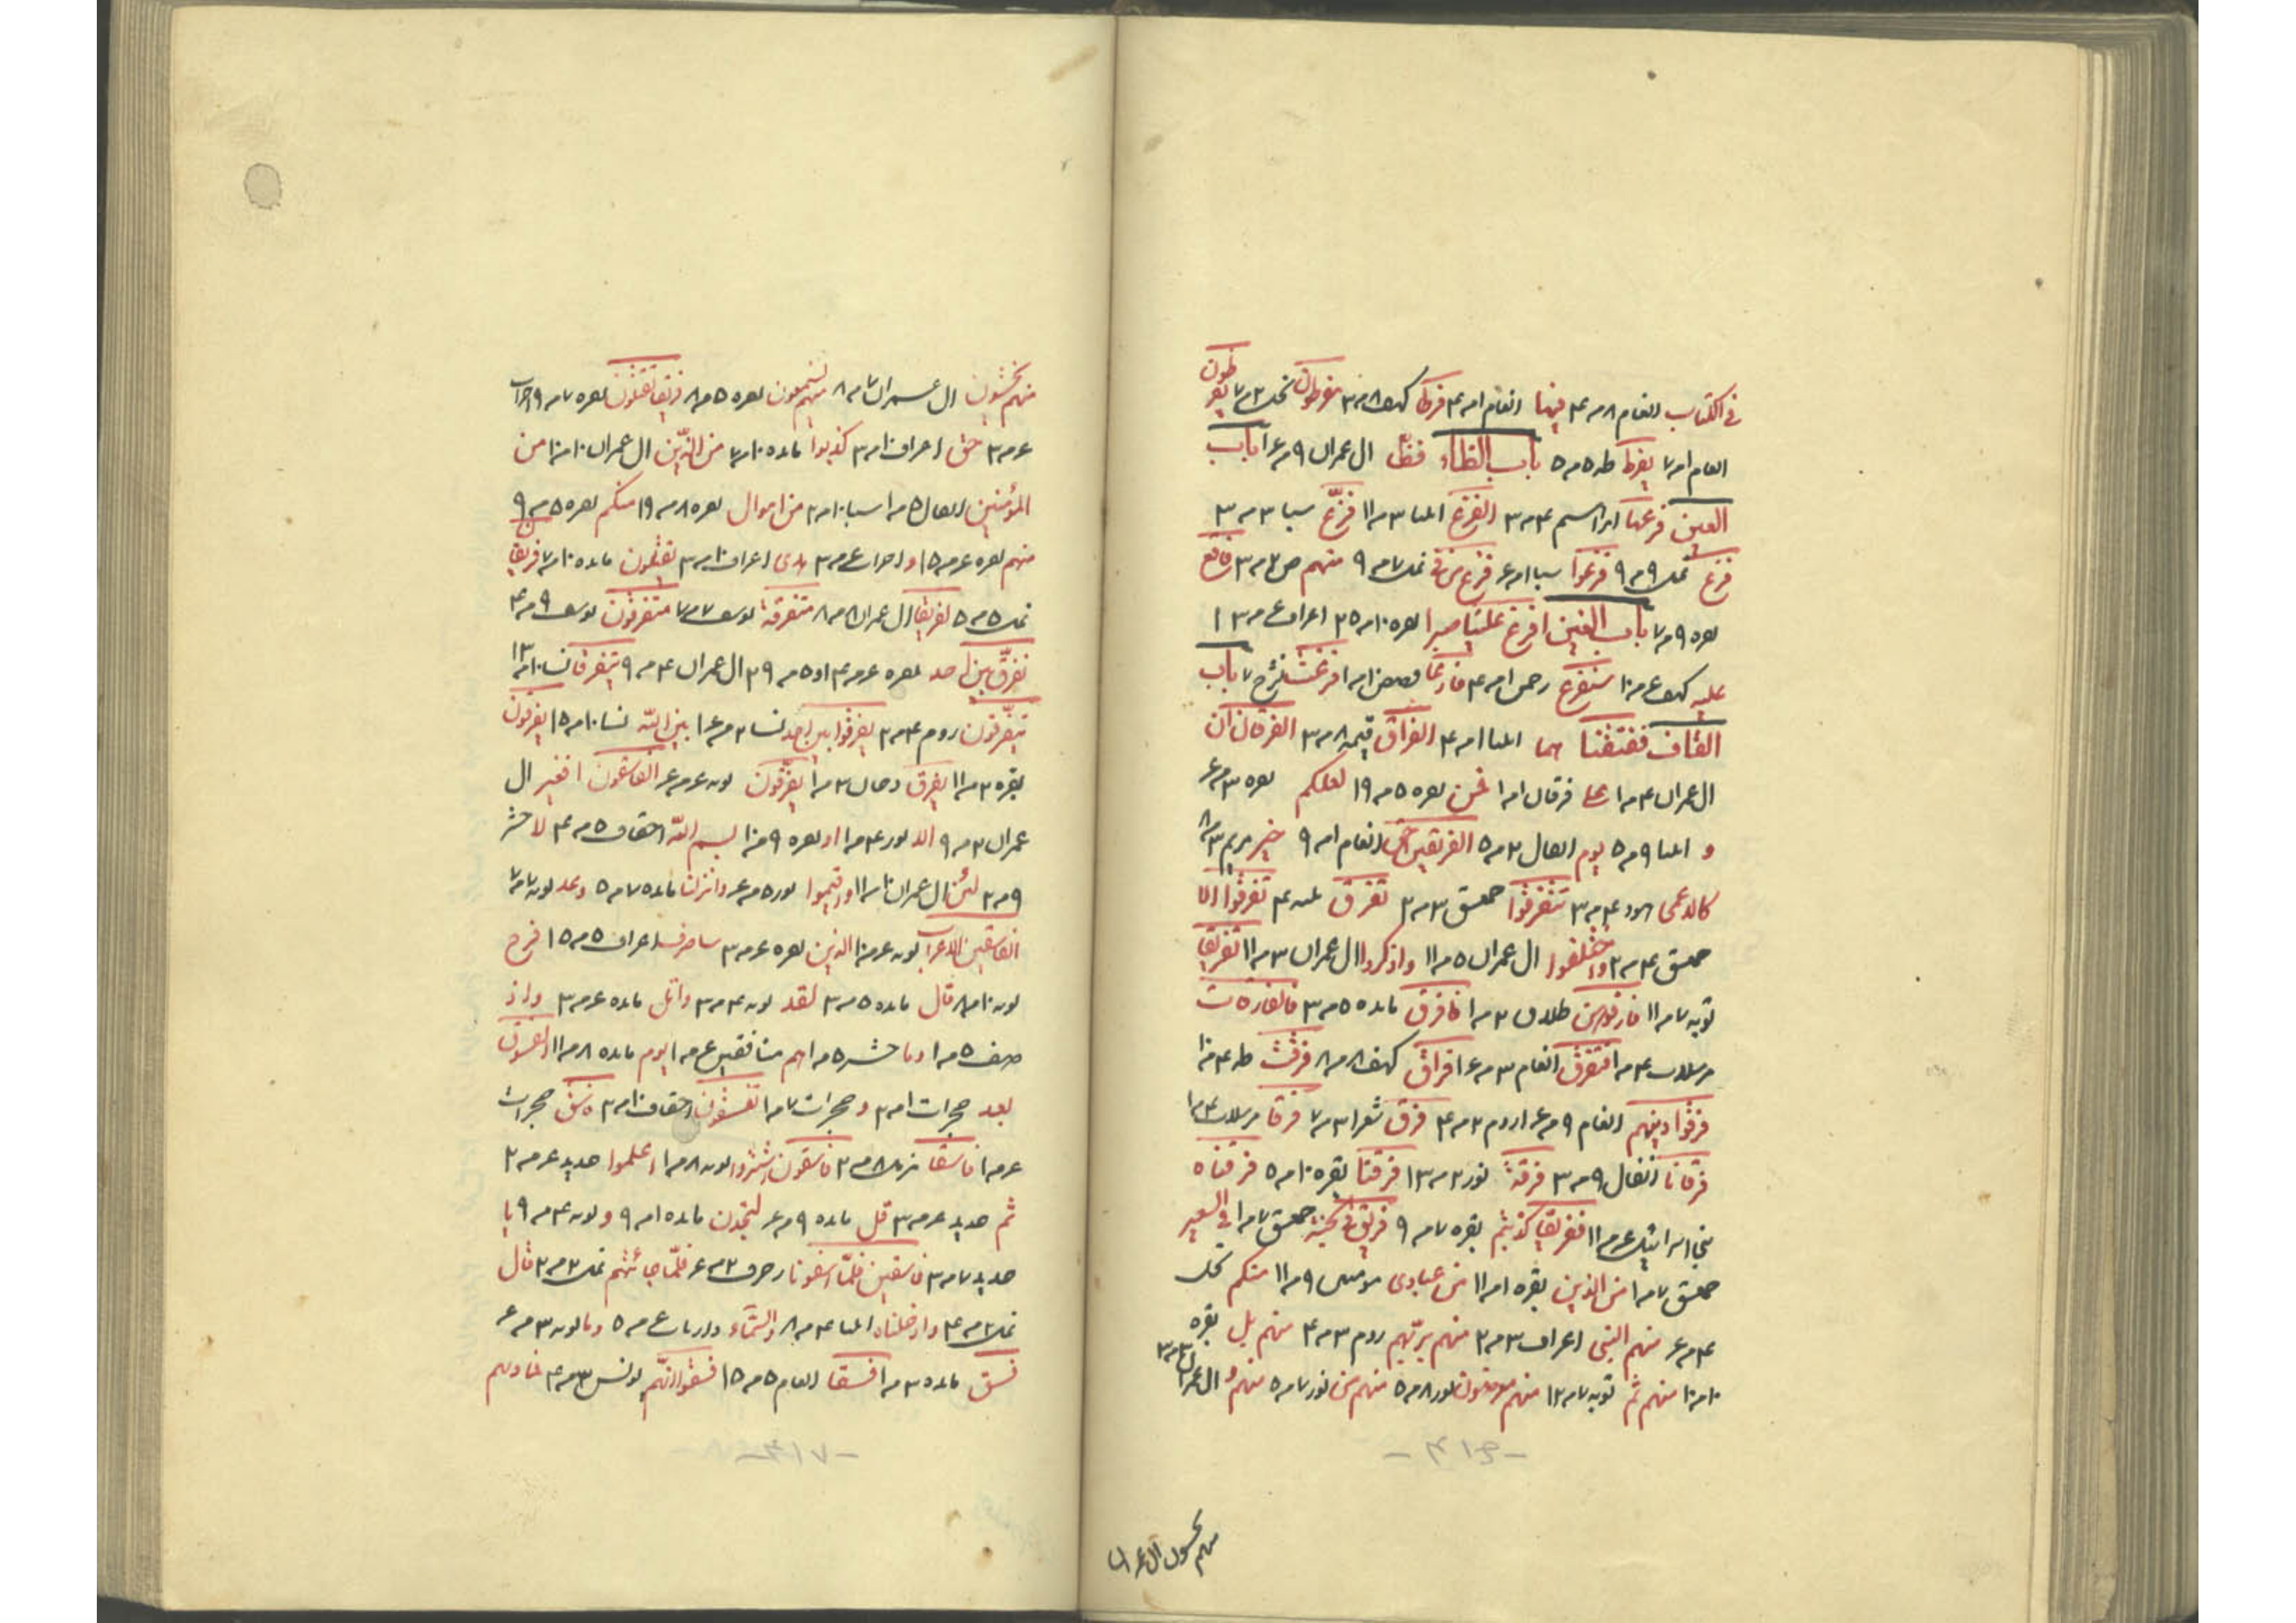 طون
في الكتاب انعام ٨ مر ٤ فيها انعام ا مر ٤ فرطا كهف ٨ مر ٣ مفرطون نحل ٣ مر ٧ يفر
انعام ا مر ٧ يفرط طه ٥ مر ٥ باب الظاء فظا ال عمران ٩ مر ع ا باب
العين فرعها ابراهيم ٤ مر ٣ الفزع انبيا ٣ مر ١١ فزع سبا ٣ مر ٣
فزع نمل ٩ مر ٩ فزعوا سبا ا مر ع فزع من في نمل ٧ مر ٩ منهم ص ٢ مر ٣ فاقع
بقره ٩ مر ٧ باب الغين افرغ علينا صبرا بقره ١٠ مر ٢٥ اعراف ع مر ٣ ا
عليه كهف ع مر ١٠ سنفرغ رحمن ا مر ٤ فارغا قصص ا مر ا فرغت نشرح ٧ باب
القاف ففتقنا هما انبيا ا مر ٤ الفراق قيمه ٨ مر ٣ الفرقان ان
ال عمران ٤ مر ا على فرقان ا مر ا فمن بقره ٥ مر ١٩ لعلكم بقره ٣ مر ع
و انبيا ٩ مر ٥ يوم انفال ٢ مر ٥ الفريقين احق انعام ا مر ٩ خير مريم ٣ مر ٨
كالاعمى هود ٤ مر ٣ تتفرقوا حمعسق ٣ مر ٢ تفرق بينه ٤ تفرقوا الا
حمعسق ٤ مر ٢ واختلفوا ال عمران ٥ مر ١١ واذكروا ال عمران ٣ مر ١١ تفريقا
توبه ٧ مر ١١ فارقوهن طلاق ٢ مر ا فافرق مائده ٥ مر ٣ فالفارقات
مرسلات ٤ مر ا فتفرق انعام ٣ مر ع ا فراق كهف ٨ مر ٨ فرقت طه ٤ مر ١٠
فرقوا دينهم انعام ٩ مر ع ا روم ٢ مر ٤ فرق شعرا ٣ مر ٧ فرقا مرسلات ٤ مر ا
فرقانا انفال ٩ مر ٣ فرقة نور ٢ مر ١٣ فرقنا بقره ١٠ مر ٥ فرقناه
بني اسرائيل ع مر ١١ ففريقا كذبتم بقره ٧ مر ٩ فريق في الجنة حمعسق ٧ مر ا في السعير
حمعسق ٧ مر ا من الذين بقره ا مر ١١ من عبادى مومنين ٩ مر ١١ منكم نحل
٤ مر ع منهم النبى احزاب ٣ مر ٢ منهم بربهم روم ٣ مر ٤ منهم بل بقره
١٠ مر ١٠ منهم ثم توبه ٧ مر ١٢ منهم معرضون نور ٨ مر ٥ منهم من نور ٧ مر ٥ منهم و ال عمران ٣ مر ٣
منهم يخشون ال عمران
منهم يخشون ال عمران ٧ مر ٨ منهم يسمعون بقره ٥ مر ٨ فريقا تقتلون بقره ٧ مر ٩ احزاب
ع مر ٣ حق اعراف ١٠ مر ٣ كذبوا مائده ١٠ مر ٧ من الذين ال عمران ١٠ مر ١٠ من
المؤمنين انفال ٥ مر ا سبا ١٠ مر ٢ من اموال بقره ٨ مر ١٩ منكم بقره ٥ مر ٩
منهم بقره ع مر ١٥ و احزاب ع مر ٣ هدى اعراف ١٠ مر ٣ يقتلون مائده ١٠ مر ٧ فريقا
نمل ٥ مر ٥ لفريقا ال عمران ٨ مر ٨ متفرقة يوسف ٧ مر ٧ متفرقون يوسف ٩ مر ٤
نفرق بين احد بقره ع مر ٤ او ٥ مر ٣٩ ال عمران ٤ مر ٩ يتفرقا نسا ١٠ مر ١٣
يتفرقون روم ٤ مر ٢ يفرقوا بين احد نسا ٢ مر ع ا بين الله نسا ١٠ مر ١٥ يفرقون
بقره ٣ مر ١١ يفرق دخان ٣ مر ا يفرقون توبه ع مر ع الفاسقون افغير ال
عمران ٣ مر ٩ الا نور ٤ مر ا او بقره ٩ مر ١٠ بسم الله احقاف ٥ مر ٤ لا حشر
٩ مر ٢ لئن ال عمران ١٠ مر ١١ واقيموا نور ٥ مر ع وانزلنا مائده ٧ مر ٥ وعد توبه ٧ مر ٧
الفاسقين الاعراب توبه ع مر ١٠ الذين بقره ع مر ٣ ساصرف اعراف ٥ مر ١٥ فرح
توبه ١٠ مر ٨ قال مائده ٥ مر ٣ لقد توبه ٤ مر ٣ واتل مائده ع مر ٣ واذ
صف ٥ مر ا وما حشر ٥ مر ا هم منافقين ع مر ا اليوم مائده ٨ مر ١١ الفسوق
بعد حجرات ا مر ٢ و حجرات ٧ مر ا تفسقون احقاف ١٠ مر ٢ فاسق حجرات
ع مر ا فاسقا تنزيل ٨ مر ٢ فاسقون اشتروا توبه ٨ مر ا اعلموا حديد ع مر ٢
ثم حديد ع مر ٣ قل مائده ٩ مر ع لتجدن مائده ا مر ٩ و توبه ٤ مر ٩ يا
حديد ٧ مر ٣ فاسقين فلما اسفونا زخرف ٢ مر ع فلما جائتهم نمل ٢ مر ٢ قال
نمل ٢ مر ٤ وادخلناه انبيا ٤ مر ٨ والسماء ذاريات ع مر ٥ وما توبه ٣ مر ع
فسق مائده ٣ مر ا فسقا انعام ٥ مر ١٥ فسقوا انهم يونس ٣ مر ٤ فماويهم